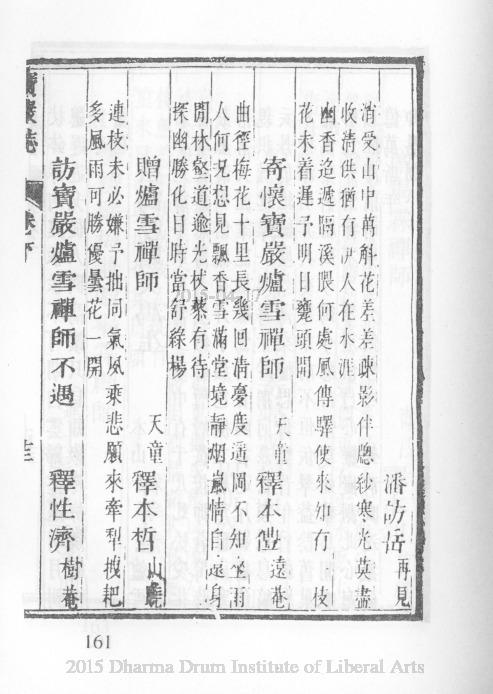 潘訪岳再見
消受山中萬斛花差差疎影伴牕紗寒光莫盡
收清供猶有伊人在水涯
幽香迢遞隔溪隈何處風傳驛使來知有一枝
花未着遲予明日甕頭開
寄懷寶嚴爐雪禪師 天童釋本㠠遠菴
曲徑梅花十里長幾回清憂度道岡不知坐雨
人何況想見飄香雪滿堂境靜烟嵐情自遠身
閒林壑道逾光杖藜有待
探幽勝化日時當舒綠楊
贈爐雪禪師 天童釋本哲山曉
連枝未必嫌予拙同氣夙乘悲願來牽犁拽耙
多風雨可勝優曇花一開
訪寶嚴爐雪禪師不遇 釋性濟樹菴
寶嚴誌 卷下 十三
161
2015 Dharma Drum Institute of Liberal Arts